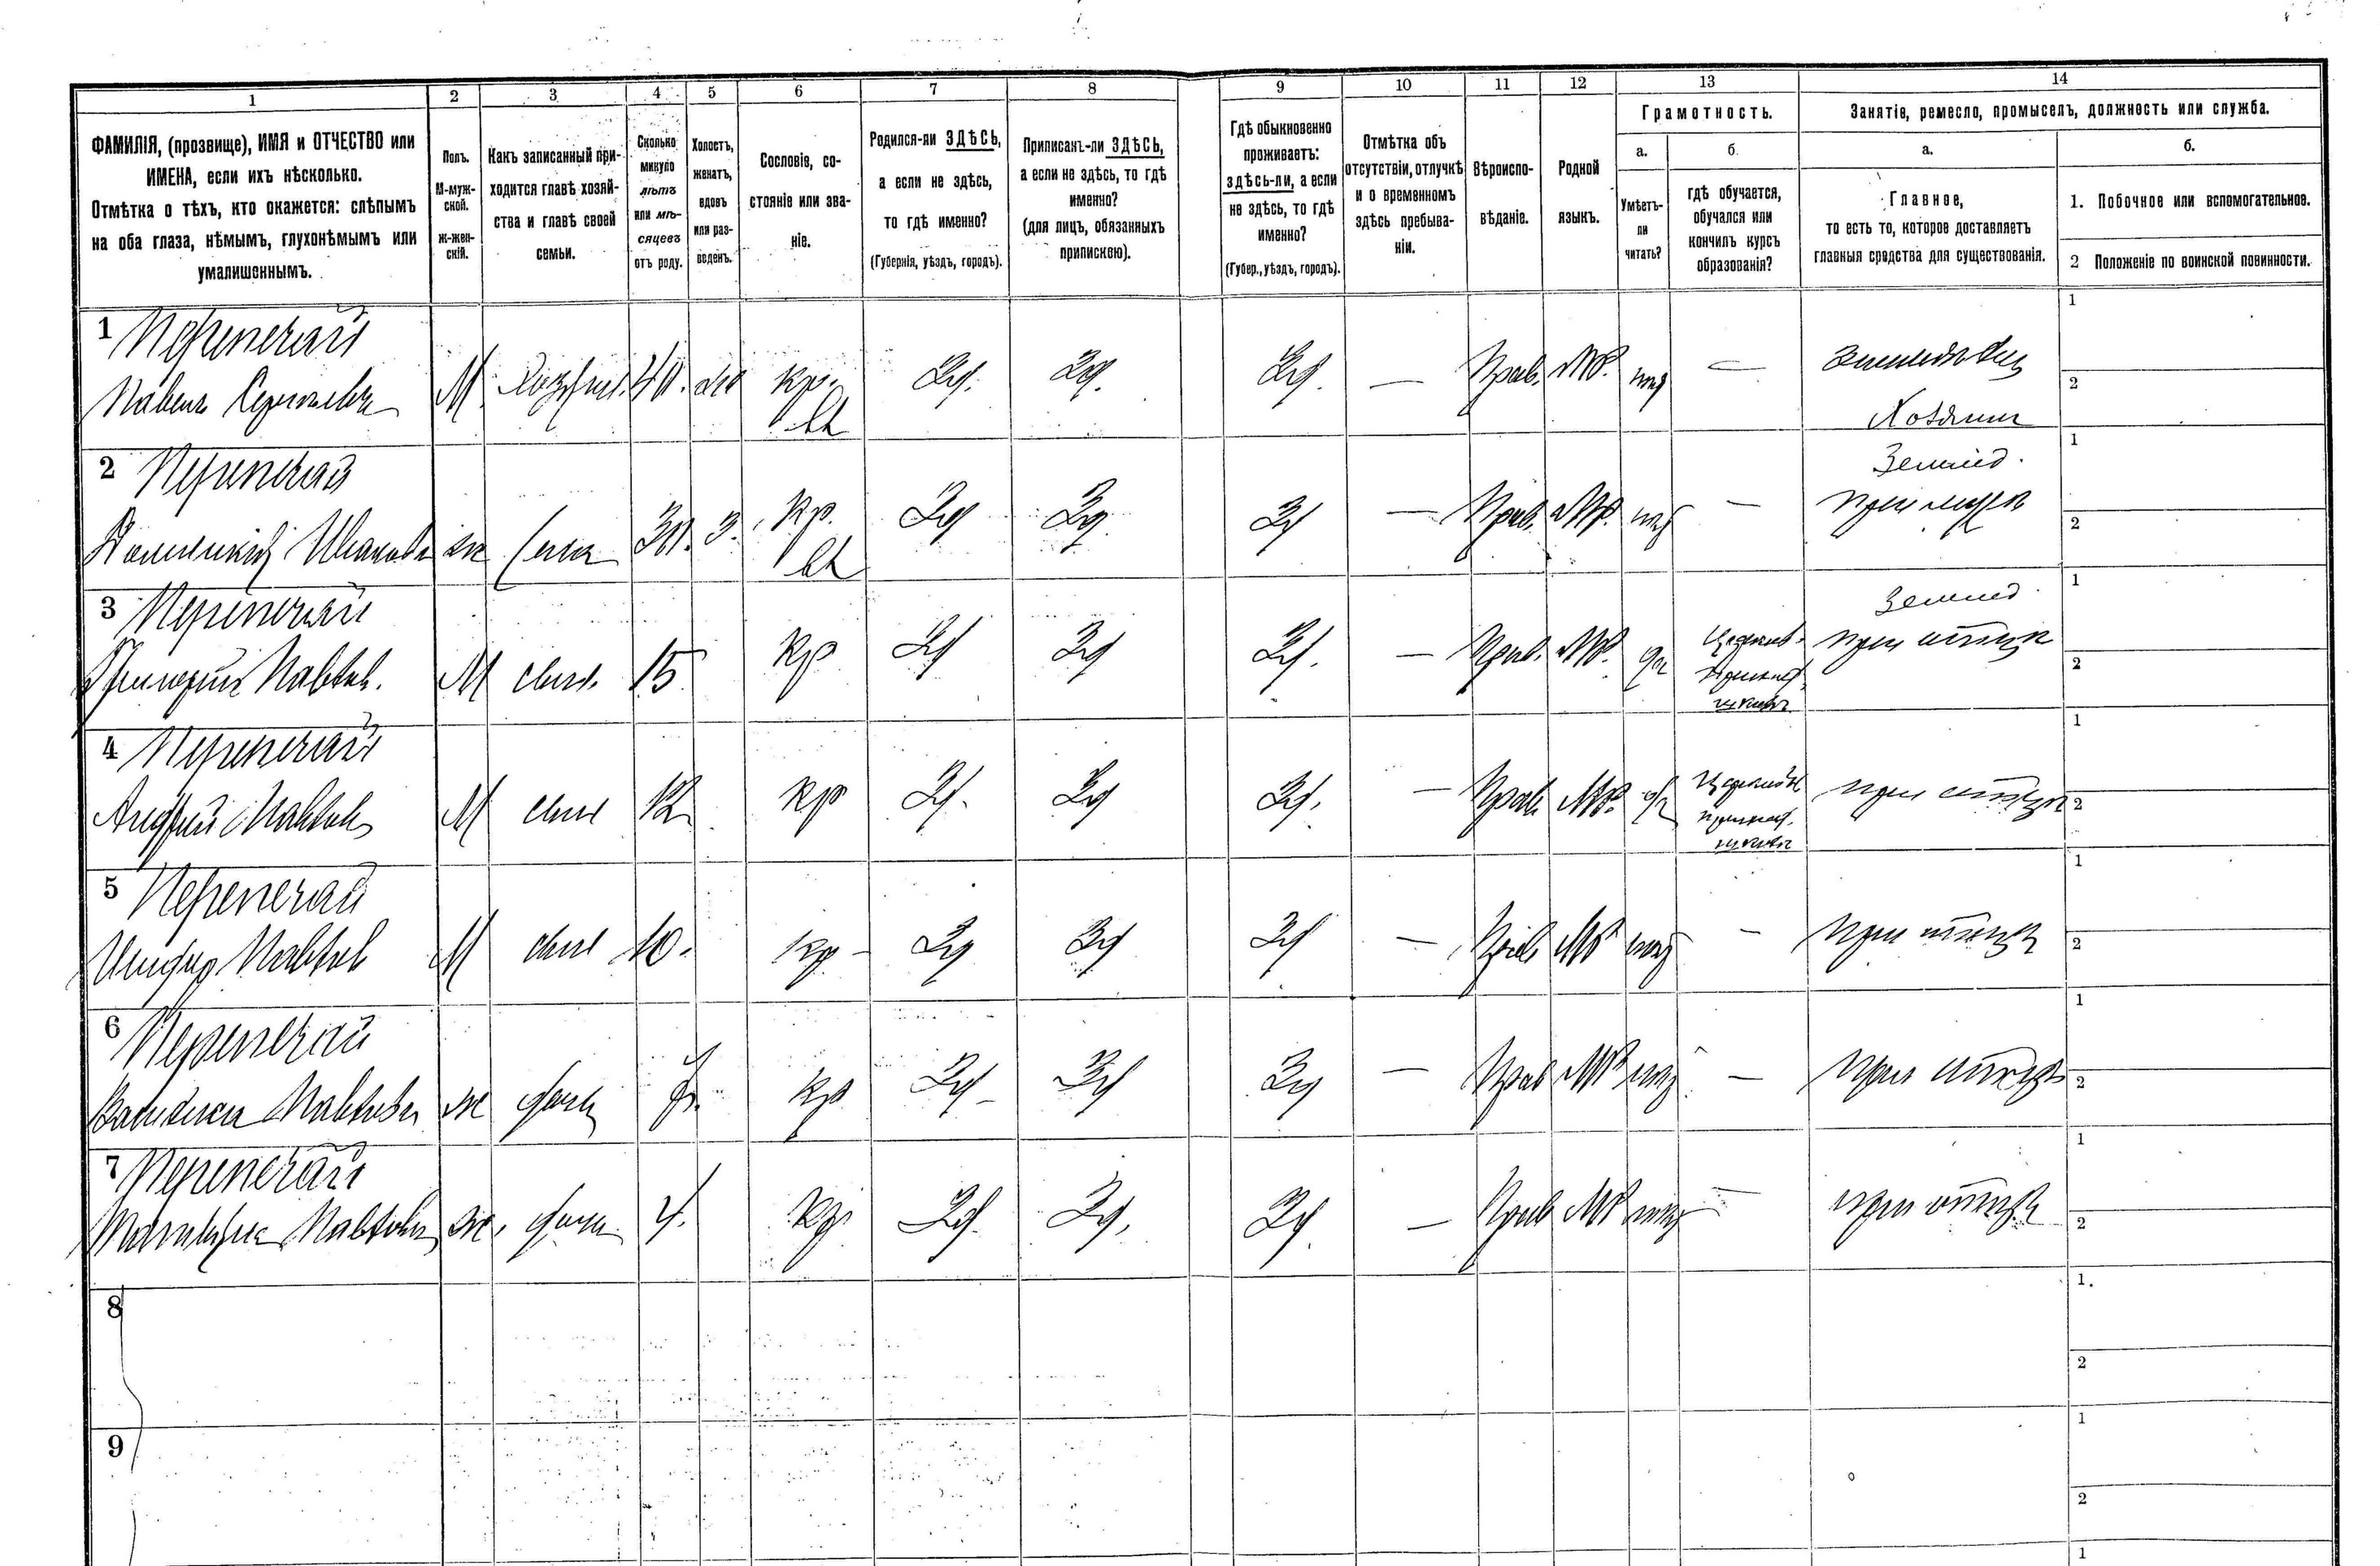 1 2 3 4 5 6 7 8 9 10 11 12 13 14
ФАМИЛІЯ, (прозвище), ИМЯ и ОТЧЕСТВО или
ИМЕНА, если ихъ нѣсколько.
Отмѣтка о тѣхъ, кто окажется: слѣпымъ
на оба глаза, нѣмымъ, глухонѣмымъ или
умалишеннымъ.
Полъ.
М-муж-
ской.
ж-жен-
скій.
Какъ записанный при-
ходится главѣ хозяй-
ства и главѣ своей
семьи.
Сколько
минуло
лѣтъ
или мѣ-
сяцевъ
отъ роду.
Холостъ,
женатъ,
вдовъ
или раз-
веденъ.
Сословіе, со-
стояніе или зва-
ніе.
Родился-ли ЗДѢСЬ,
а если не здѣсь,
то гдѣ именно?
(Губернія, уѣздъ, городъ).
Приписанъ-ли ЗДѢСЬ,
а если не здѣсь, то гдѣ
именно?
(для лицъ, обязанныхъ
припискею).
Гдѣ обыкновенно
проживаетъ:
здѣсь-ли, а если
не здѣсь, то гдѣ
именно?
(Губер., уѣздъ, городъ).
Отмѣтка объ
отсутствіи, отлучкѣ
и о временномъ
здѣсь пребыва-
ніи.
Вѣроиспо-
вѣданіе.
Родной
языкъ.
Грамотность.
а.
Умѣетъ-
ли
читать?
б.
гдѣ обучается,
обучался или
кончилъ курсъ
образованія?
Занятіе, ремесло, промыселъ, должность или служба.
а.
Главное,
то есть то, которое доставляетъ
главныя средства для существованія.
б.
1. Побочное или вспомогательное.
2 Положеніе по воинской повинности.
1 Перепечай
Павелъ М 40. кр. Зд. Зд. Зд. — Прав. Мр. — 1
Хозяинъ 2
2 Перепечай Землед.
Иванова ж 30. З. кр. Зд Зд Зд — Прав. Мр. — при 1
2
3 Перепечай Землед.
Григорій Павлов. М сынъ 15 кр Зд Зд Зд. — Прав. Мр. да при отцѣ 1
2
4 Перепечай
Андрей Павлов М сынъ 12 кр Зд. Зд Зд. — Прав Мр. да при отцѣ 1
2
5 Перепечай
Павлов М сынъ 10. кр Зд Зд Зд — Прав Мр — при отцѣ 1
2
6 Перепечай
Василиса Павлова ж дочь кр Зд Зд Зд — Прав Мр — при отцѣ 1
2
7 Перепечай
Павлова ж. дочь 4. кр Зд. Зд. Зд. — Прав Мр — при отцѣ 1
2
8 1.
2
9 1
2
1